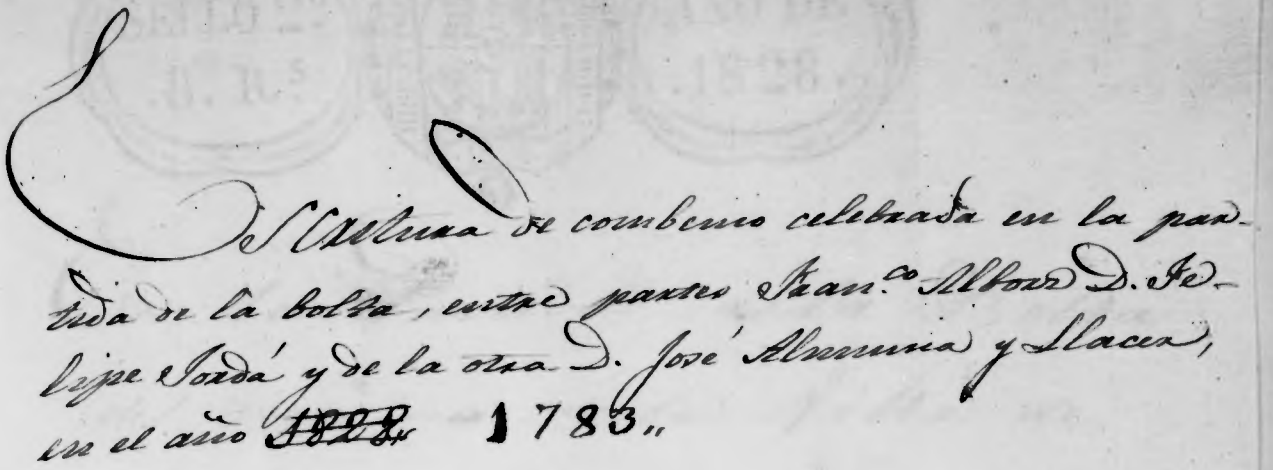 Escritura de combenio celebrada en la par-
tida de la bolta, entre partes Fran.co Albors D. Fe-
lipe Jordá y de la otra D. José Almunia y Llacer,
en el año 1828, 1783,,